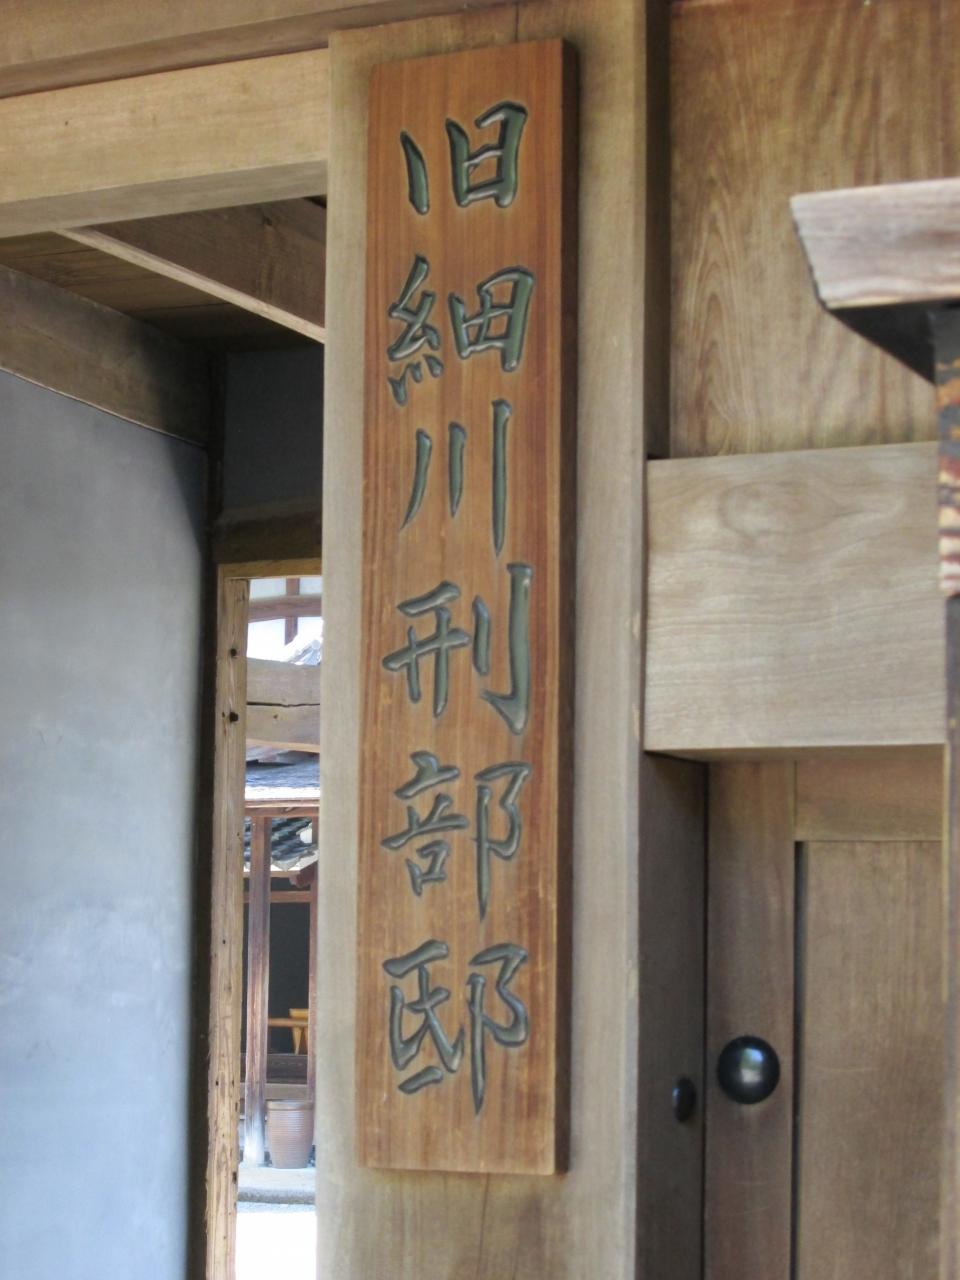 旧細川刑部邸